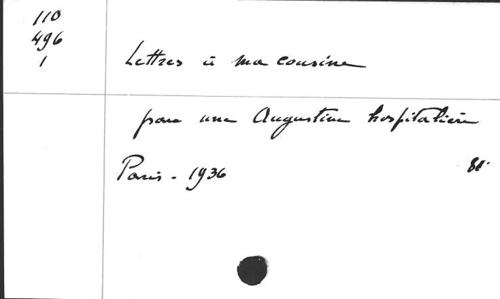 110
496
1
Lettres à ma cousine
par une Augustine hospitalière
Paris - 1936
8°